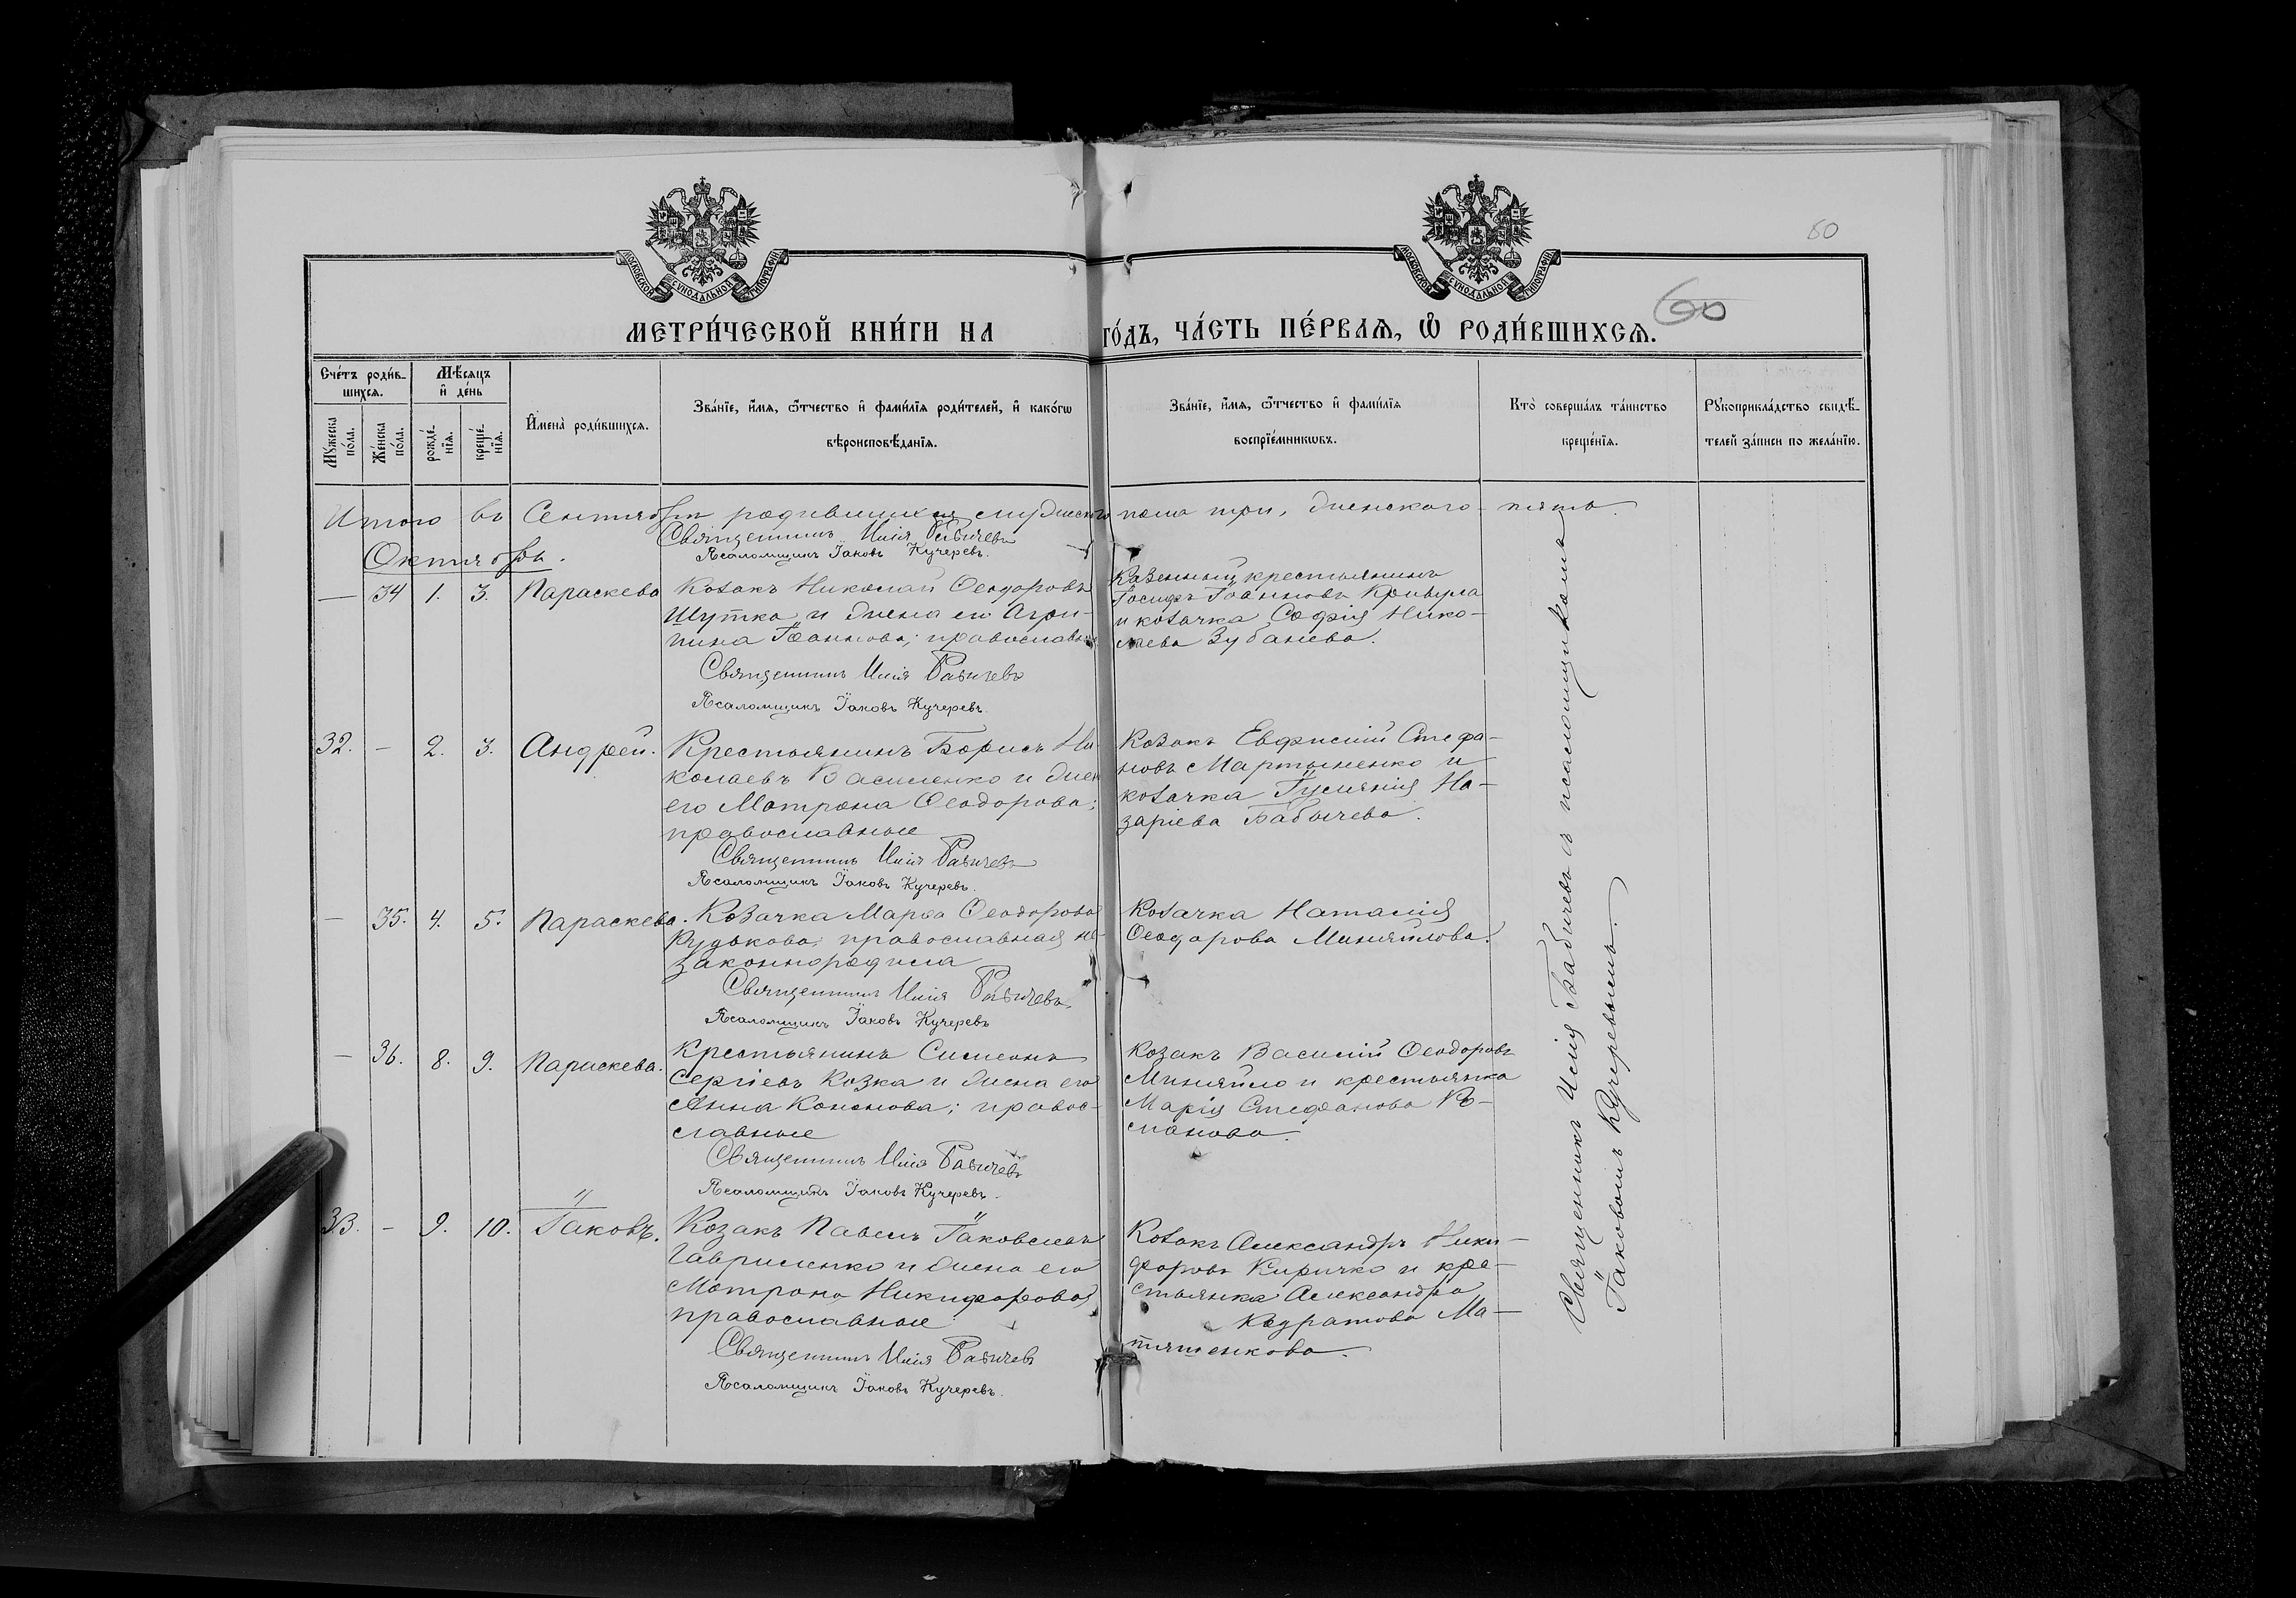 МОСКОВСКОЙ СУНОДАЛЬНОЙ ТИПОГРАФІИ
МОСКОВСКОЙ СУНОДАЛЬНОЙ ТИПОГРАФІИ
60
60
МЕТРИ́ЧЕСКОЙ КНИ́ГИ НА
ГО́ДЪ, ЧА́СТЬ ПЕ́РВАѦ, Ѽ РОДИ́ВШИХСѦ.
Сче́тъ роди́в-
шихсѧ.
Мѣ́сяцъ
и҆ де́нь
Мꙋжеска по́ла.
Же́нска по́ла.
рожде́-нїѧ.
креще́-нїѧ.
И҆мена̀ роди́вшихсѧ.
Зва́нїе, и҆́мѧ, ѻ҆́тчество и҆ фами́лїѧ роди́телей, и҆ како́гѡ
вѣроисповѣ́данїѧ.
Зва́нїе, и҆́мѧ, ѻ҆́тчество и҆ фами́лїѧ
воспрїе́мникѡвъ.
Кто̀ соверша́лъ та́инство
креще́нїѧ.
Рꙋкоприкла́дство свидѣ́-
телей за́писи по жела́нїю.
Итого въ Сентябрѣ родившихся мужескаго пола три, женскаго - пять.
Священникъ Илія Бабичевъ
Псаломщикъ Іаковъ Кучеревъ.
Октябрь.
— 34 1. 3. Параскева
Козакъ Николай Ѳеодоровъ
Шутка и жена его Агри-
пина Іоаннова; православные
Священникъ Илія Бабичевъ
Псаломщикъ Іаковъ Кучеревъ.
Казенный крестьянинъ
Іосифъ Іоанновъ Кривула
и козачка Софія Нико-
лаева Зубанева.
32. — 2. 3. Андрей.
Крестьянинъ Борисъ Ни-
колаевъ Василенко и жена
его Матрона Ѳеодорова;
православные
Священникъ Илія Бабичевъ
Псаломщикъ Іаковъ Кучеревъ.
Козакъ Евфимій Стефа-
новъ Мартыненко и
козачка Іуліанія На-
заріева Бабычева.
— 35. 4. 5. Параскева.
Козачка Марѳа Ѳеодорова
Рудькова; православная не-
законнородила
Священникъ Илія Бабичевъ
Псаломщикъ Іаковъ Кучеревъ
Козачка Наталія
Ѳеодорова Миняйлова.
— 36. 8. 9. Параскева.
Крестьянинъ Симеонъ
Сергіевъ Козка и жена его
Анна Кононова; правос-
славные
Священникъ Илія Бабичевъ
Псаломщикъ Іаковъ Кучеревъ.
Козакъ Василій Ѳеодоровъ
Миняйло и крестьянка
Марія Стефанова
33. — 9. 10. Іаковъ.
Козакъ Павелъ Іаковлевъ
Гавриленко и жена его
Матрона Никифорова;
православные
Священникъ Илія Бабичевъ
Псаломщикъ Іаковъ Кучеревъ.
Козакъ Александръ Ники-
форовъ Киричко и кре-
стьянка Александра
Кодратова Ма-
тяшенкова.
Священникъ Илія Бабичевъ съ псаломщикомъ
Іаковомъ Кучеревымъ.